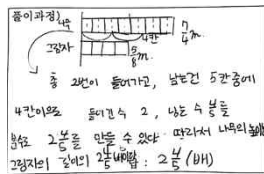 풀이과정)
나무 7/4 m
4칸
그림자 5/8 m.
총 2번이 들어가고, 남는건 5칸중에
4칸이므로 들어간수 2, 남는 수 4/5를
분수로 2 4/5를 만들 수 있다. 따라서 나무의 높이는
그림자의 길이의 2 4/5배이다. 답: 2 4/5 (배)